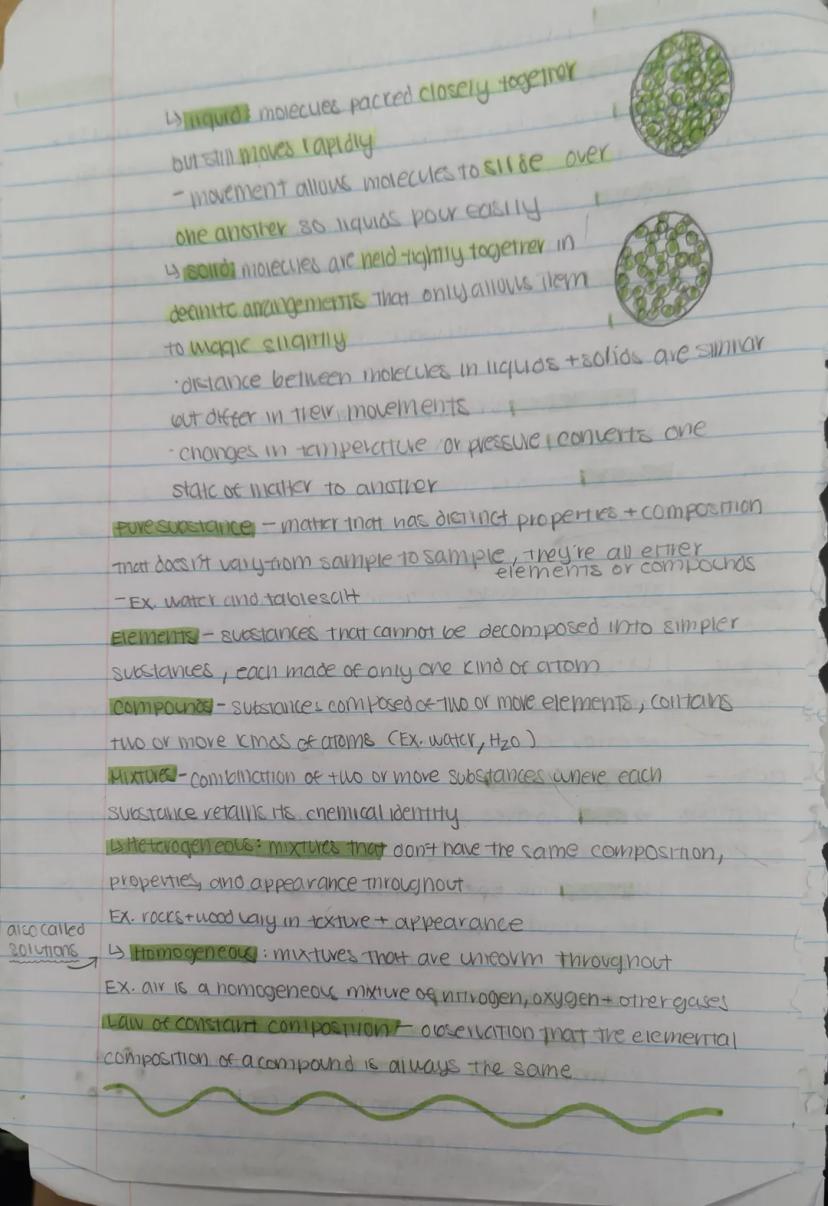 ↳ liquid: molecules packed closely together
but still moves rapidly
- movement allows molecules to slide over
one another so liquids pour easily
↳ solid: molecules are held tightly together in
definite arrangements that only allows them
to wiggle slightly
· distance between molecules in liquids + solids are similar
but differ in their movements
· changes in temperature or pressure converts one
state of matter to another
pure substance - matter that has distinct properties + composition
that doesn't vary from sample to sample, they're all either
elements or compounds
- Ex. water and table salt
Elements - substances that cannot be decomposed into simpler
substances, each made of only one kind of atom
compounds - substances composed of two or more elements, contains
two or more kinds of atoms (Ex. water, H2O)
Mixtures - combination of two or more substances where each
substance retains its chemical identity
↳ Heterogeneous: mixtures that don't have the same composition,
properties, and appearance throughout
Ex. rocks + wood vary in texture + appearance
also called
solutions
↳ Homogeneous: mixtures that are uniform throughout
Ex. air is a homogeneous mixture of nitrogen, oxygen + other gases
Law of constant composition - observation that the elemental
composition of a compound is always the same